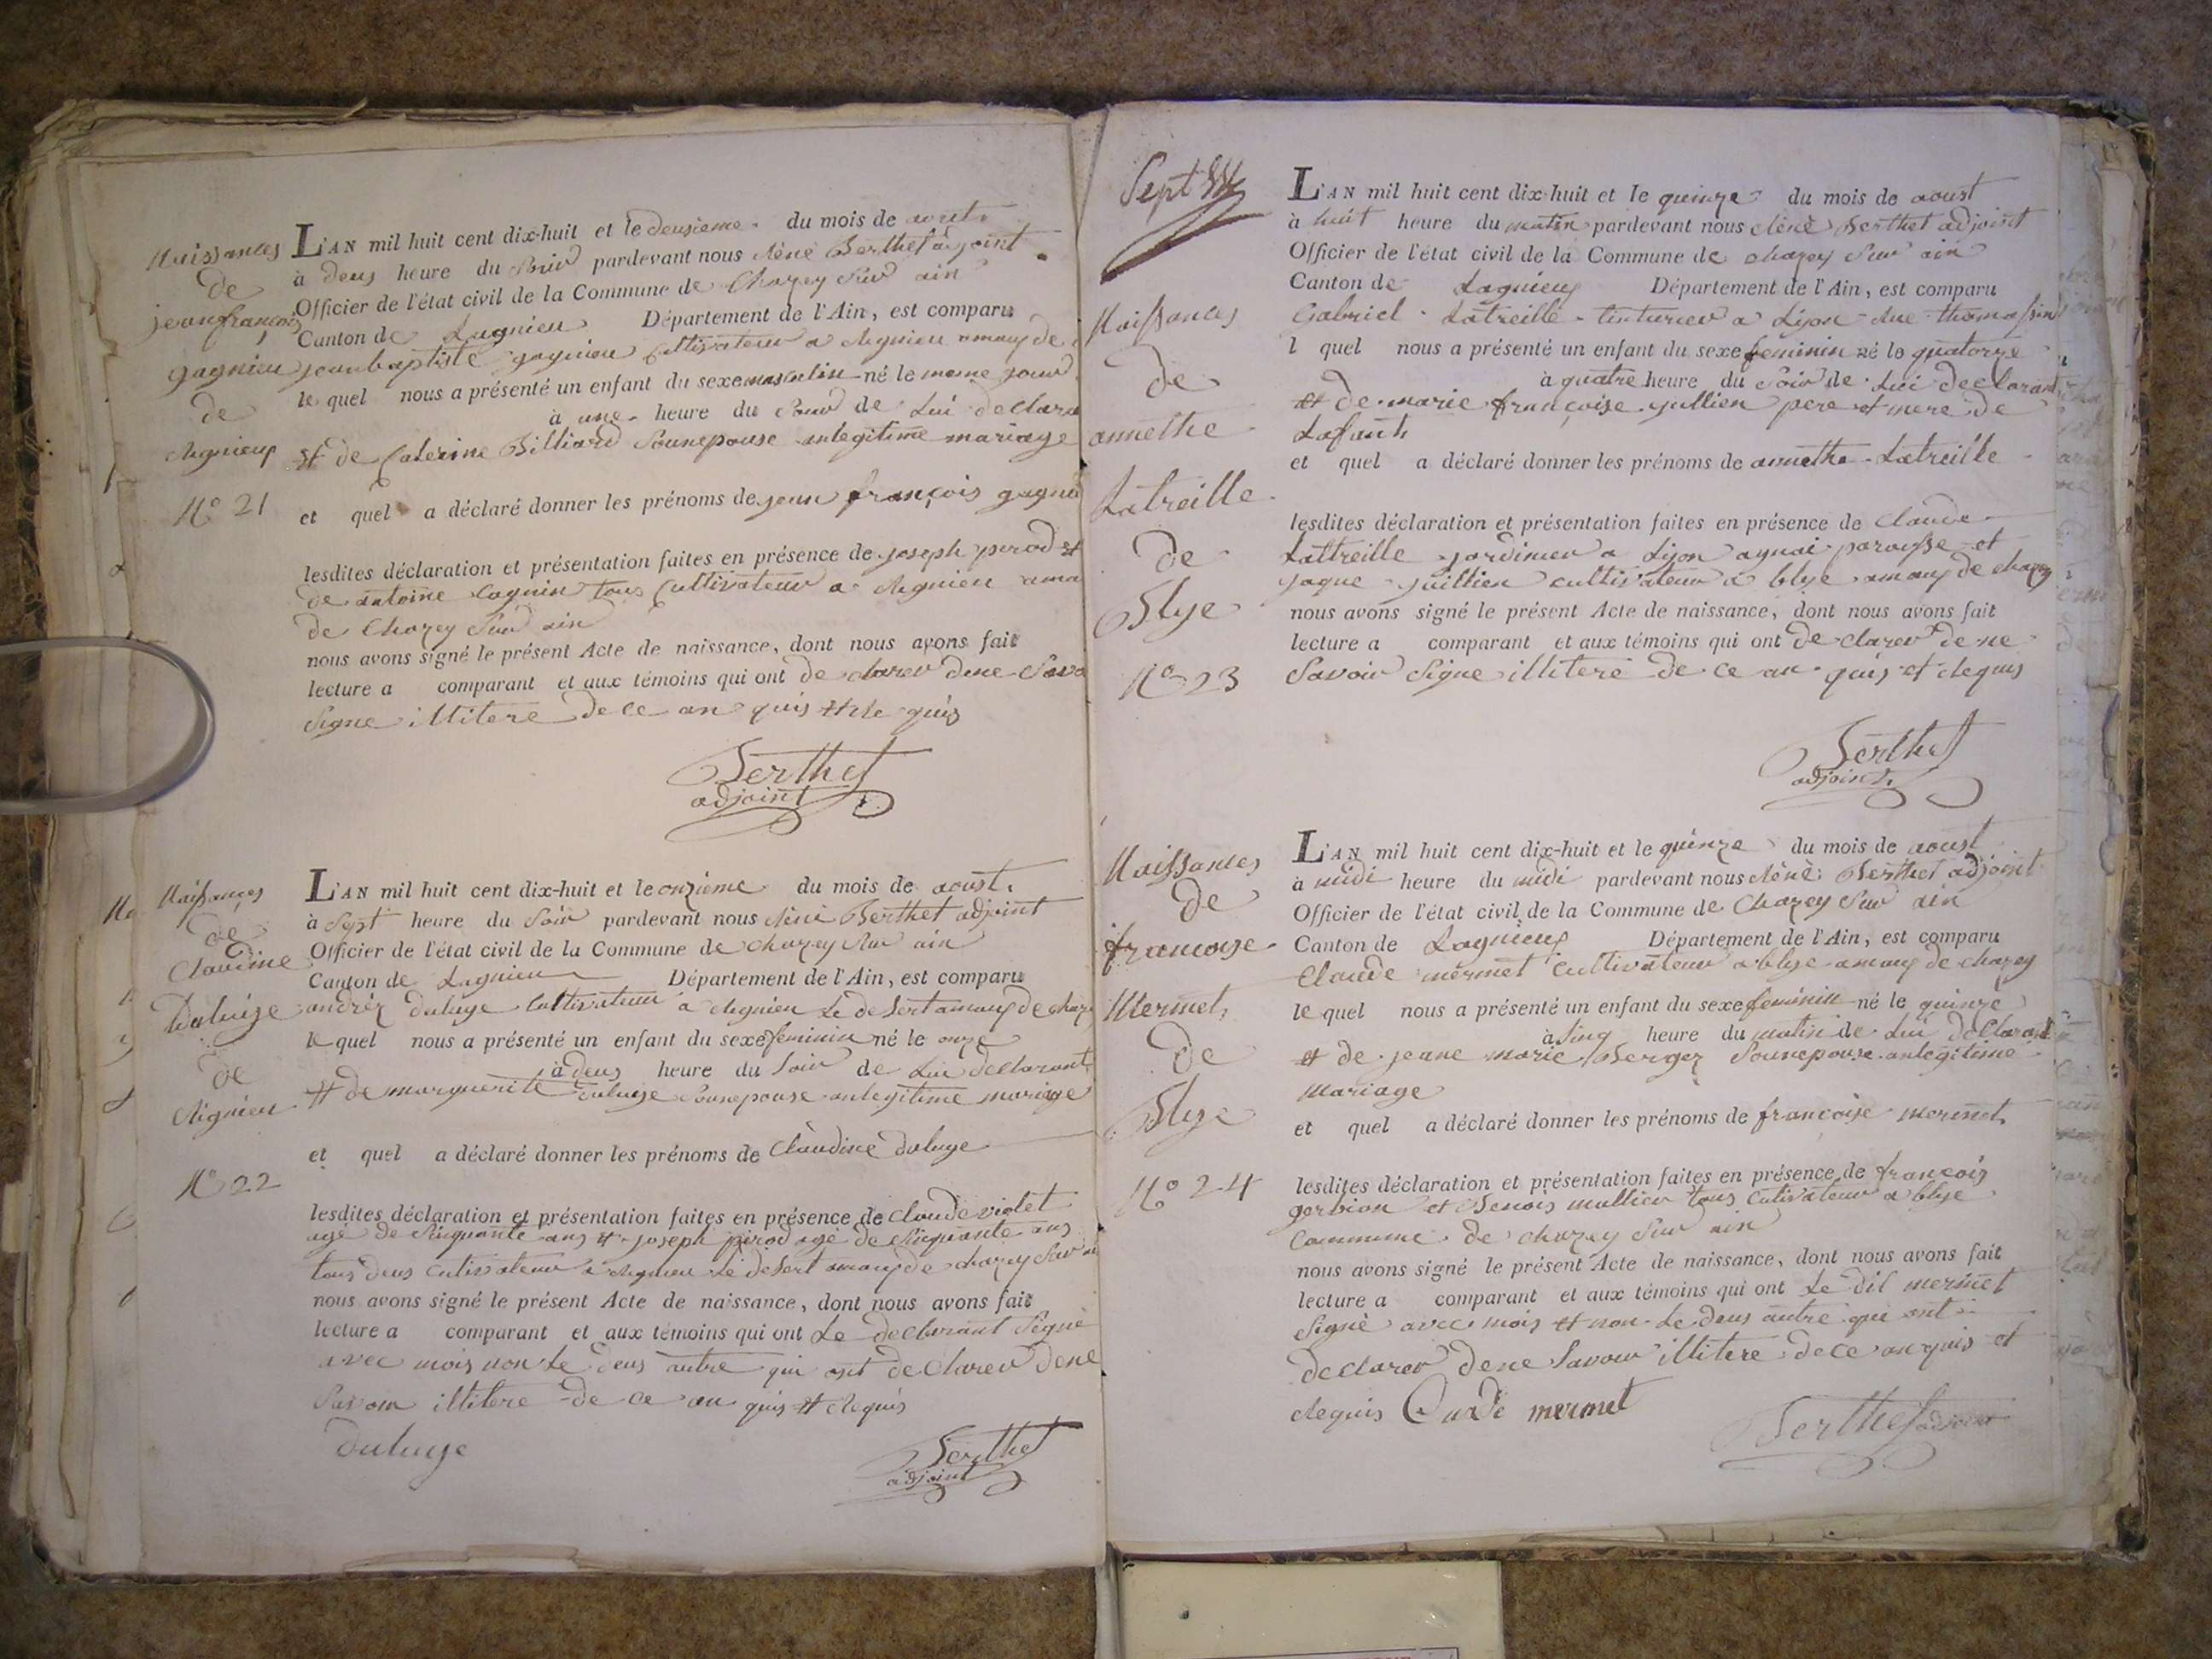 Naissances
de
jean françois
gagnieu
de
Rignieux
N° 21
L'AN mil huit cent dix-huit et le deusieme du mois de aout
à deus heure du Soir pardevant nous Réné Berthet adjoint
Officier de l'état civil de la Commune de Chazey Sur ain
Canton de Lagnieu Département de l'Ain, est comparu
jean baptiste gagnieu Cultivateur a Rignieu amaux de
le quel nous a présenté un enfant du sexe masculin né le meme jour
à une heure du Soir de Lui declara
et de Caterine Billiard Sonnepouse anlegitime mariage
et quel a déclaré donner les prénoms de jean françois gagnie
lesdites déclaration et présentation faites en présence de joseph perod et
de antoine Cagnin tous Cultivateur a Rignieu ama
de Chazey Sur ain
nous avons signé le présent Acte de naissance, dont nous avons fait
lecture a comparant et aux témoins qui ont de clarer dene Savo
Signe illitere de ce an quis et re quis
Berthet
adjoint
Naissances
de
Claudine
Duluize
de
Rignieu
N° 22
L'AN mil huit cent dix-huit et le onzieme du mois de aoust
à Sept heure du Soir pardevant nous Réné Berthet adjoint
Officier de l'état civil de la Commune de Chazey Sur ain
Canton de Lagnieu Département de l'Ain, est comparu
andréz duluge Cultivateur a Rignieu Le desert amaux de chaze
le quel nous a présenté un enfant du sexe feminin né le onze
à deus heure du Soir de Lui declarant
et de marguerite duluge Sonnepouse anlegitime mariage
et quel a déclaré donner les prénoms de Claudine duluge
lesdites déclaration et présentation faites en présence de Claude violet
agé de Sinquante ans et joseph pirod age de Sinquante ans
tous deus cutivateur a Rignieu Le desert amaux de chazey Sur ai
nous avons signé le présent Acte de naissance, dont nous avons fait
lecture a comparant et aux témoins qui ont Le declarant Signé
avec mois non Le deus autre qui ont declarer dene
Savoir illitere de ce an quis et Requis
Duluge
Berthet
adjoint
Sept
Naissances
de
annethe
Latreille
de
Blye
N° 23
L'AN mil huit cent dix-huit et le quinze du mois de aoust
à huit heure du matin pardevant nous Réné Berthet adjoint
Officier de l'état civil de la Commune de chazey Sur ain
Canton de Lagnieux Département de l'Ain, est comparu
Gabriel Latreille tinturier a Lijon Rue thomassin
l quel nous a présenté un enfant du sexe feminin né le quatorze
à quatre heure du Soir de Lui declarant
et de marie françoise jullien pere et mere de
Lafant
et quel a déclaré donner les prénoms de annethe Latreille
lesdites déclaration et présentation faites en présence de Claude
Lattreille jardinier a Lijon aynai paroisse et
jaque juillien cultivateur a blye amaux de chazey
nous avons signé le présent Acte de naissance, dont nous avons fait
lecture a comparant et aux témoins qui ont de clarer de ne
Savoir Signe illitere de ce an quis et Requis
Berthet
adjoint
Naissances
de
francoise
Mermet
de
Blye
N° 24
L'AN mil huit cent dix-huit et le quinze du mois de aoust
à midi heure du midi pardevant nous Réné Berthet adjoint
Officier de l'état civil de la Commune de Chazey Sur ain
Canton de Lagnieux Département de l'Ain, est comparu
Claude mermet Cultivateur a blye amaux de chazey
le quel nous a présenté un enfant du sexe feminin né le quinze
à Sinq heure du matin de Lui declarant
et de jeane marie Berger Sonnepouse anlegitime
mariage
et quel a déclaré donner les prénoms de françoise mermet
lesdites déclaration et présentation faites en présence de françois
gerbion et Benois mullier tous Cutivateur a blye
Commune de chazey Sur ain
nous avons signé le présent Acte de naissance, dont nous avons fait
lecture a comparant et aux témoins qui ont Le dit mermet
Signé avec mois et non Le deus autre qui ont
declarer dene Savoir illitere de ce an quis et
Requis Claude mermet
Berthet adjoint